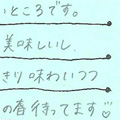 いところです。
美味しいし、
きり味わいつつ
の春待ってます